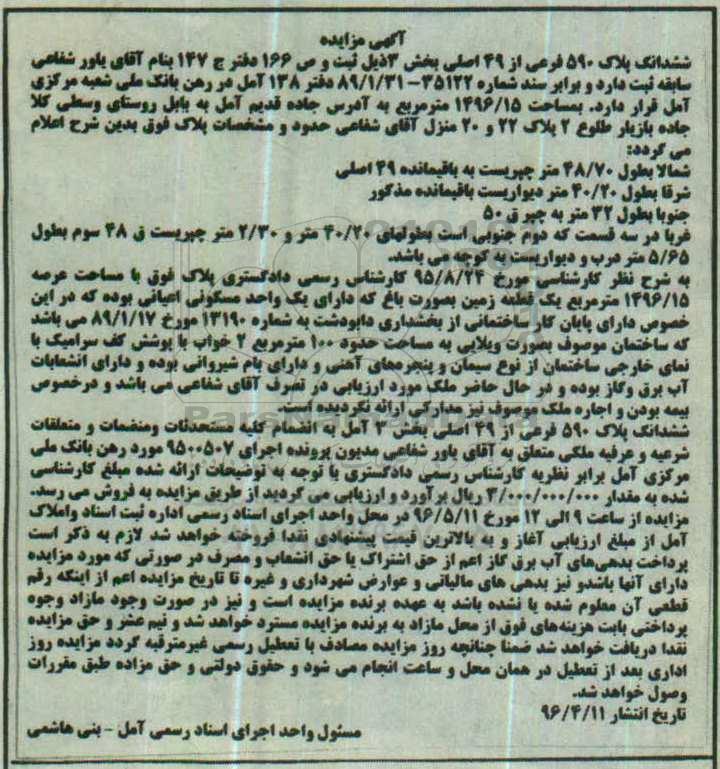 آگهی مزایده
ششدانک پلاک ۵۹۰ فرعی از ۴۹ اصلی بخش ۳ذیل ثبت و ص ۱۶۶ دفتر ج ۱۴۷ بنام آقای یاور شفاعی
سابقه ثبت دارد و برابر سند شماره ۳۵۱۲۲-۸۹/۱/۳۱ دفتر ۱۳۸ آمل در رهن بانک ملی شعبه مرکزی
آمل قرار دارد. بمساحت ۱۴۹۶/۱۵ مترمربع به آدرس جاده قدیم آمل به بابل روستای وسطی کلا
جاده بازیار طلوع ۲ پلاک ۲۲ و ۲۰ منزل آقای شفاعی حدود و مشخصات پلاک فوق بدین شرح اعلام
می گردد:
شمالا بطول ۴۸/۷۰ متر چپریست به باقیمانده ۴۹ اصلی
شرقا بطول ۴۰/۲۰ متر دیواریست باقیمانده مذکور
جنوبا بطول ۳۲ متر به چپر ق ۵۰
غربا در سه قسمت که دوم جنوبی است بطولهای ۴۰/۲۰ متر و ۲/۳۰ متر چپریست ق ۴۸ سوم بطول
۵/۶۵ متر درب و دیواریست به کوچه می باشد.
به شرح نظر کارشناسی مورخ ۹۵/۸/۲۴ کارشناس رسمی دادگستری پلاک فوق با مساحت عرصه
۱۴۹۶/۱۵ مترمربع یک قطعه زمین بصورت باغ که دارای یک واحد مسکونی اعیانی بوده که در این
خصوص دارای پایان کار ساختمانی از بخشداری دابودشت به شماره ۱۳۱۹۰ مورخ ۸۹/۱/۱۷ می باشد
که ساختمان موصوف بصورت ویلایی به مساحت حدود ۱۰۰ مترمربع ۲ خواب با پوشش کف سرامیک با
نمای خارجی ساختمان از نوع سیمان و پنجره‌های آهنی و دارای بام شیروانی بوده و دارای انشعابات
آب برق وگاز بوده و در حال حاضر ملک مورد ارزیابی در تصرف آقای شفاعی می باشد و درخصوص
بیمه بودن و اجاره ملک موصوف نیز مدارکی ارائه نگردیده است.
ششدانک پلاک ۵۹۰ فرعی از ۴۹ اصلی بخش ۳ آمل به انضمام کلیه مستحدثات ومنضمات و متعلقات
شرعیه و عرفیه ملکی متعلق به آقای یاور شفاعی مدیون پرونده اجرای ۹۵۰۰۵۰۷ مورد رهن بانک ملی
مرکزی آمل برابر نظریه کارشناس رسمی دادگستری با توجه به توضیحات ارائه شده مبلغ کارشناسی
شده به مقدار ۳/۰۰۰/۰۰۰/۰۰۰ ریال برآورد و ارزیابی می گردید از طریق مزایده به فروش می رسد.
مزایده از ساعت ۹ الی ۱۲ مورخ ۹۶/۵/۱۱ در محل واحد اجرای اسناد رسمی اداره ثبت اسناد واملاک
آمل از مبلغ ارزیابی آغاز و به بالاترین قیمت پیشنهادی نقدا فروخته خواهد شد لازم به ذکر است
پرداخت بدهی‌های آب برق گاز اعم از حق اشتراک یا حق انشعاب و مصرف در صورتی که مورد مزایده
دارای آنها باشدو نیز بدهی های مالیاتی و عوارض شهرداری و غیره تا تاریخ مزایده اعم از اینکه رقم
قطعی آن معلوم شده یا نشده باشد به عهده برنده مزایده است و نیز در صورت وجود مازاد وجوه
پرداختی بابت هزینه‌های فوق از محل مازاد به برنده مزایده مسترد خواهد شد و نیم عشر و حق مزایده
نقدا دریافت خواهد شد ضمنا چنانچه روز مزایده مصادف با تعطیل رسمی غیرمترقبه گردد مزایده روز
اداری بعد از تعطیل در همان محل و ساعت انجام می شود و حقوق دولتی و حق مزاده طبق مقررات
وصول خواهد شد.
تاریخ انتشار ۹۶/۴/۱۱
مسئول واحد اجرای اسناد رسمی آمل - بنی هاشمی